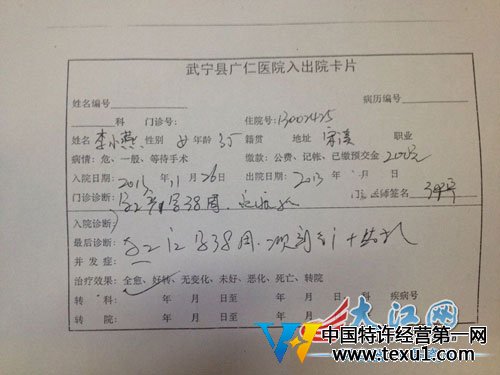 武宁县广仁医院入出院卡片
姓名编号 病历编号
科 门诊号: 住院号:13002425
姓名 李小燕 性别 女 年龄 35 籍贯 地址 宋溪 职业
病情: 危、一般、等待手术 缴款: 公费、记帐、已缴预交金 200元
入院日期: 2013年 11月 26日 出院日期: 2013年 月 日
门诊诊断: 孕2产1孕38周 医师签名
入院诊断:
最后诊断: 孕38周
并发症:
治疗效果: 全愈、好转、无变化、未好、恶化、死亡、转院
转 科: 年 月 日至 年 月 日 科 疾病号
转 院: 年 月 日至 年 月 日
大江网
中国特许经营第一网
www.texu1.com